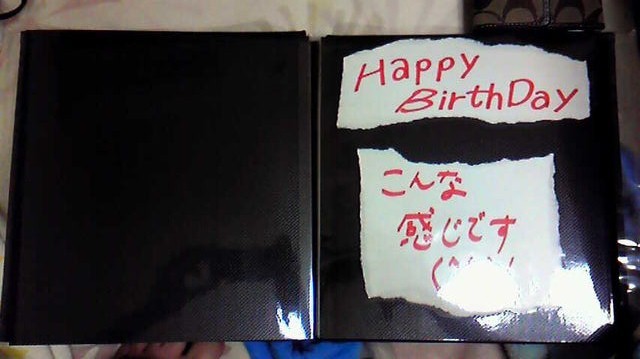 Happy
BirthDay
こんな
感じです